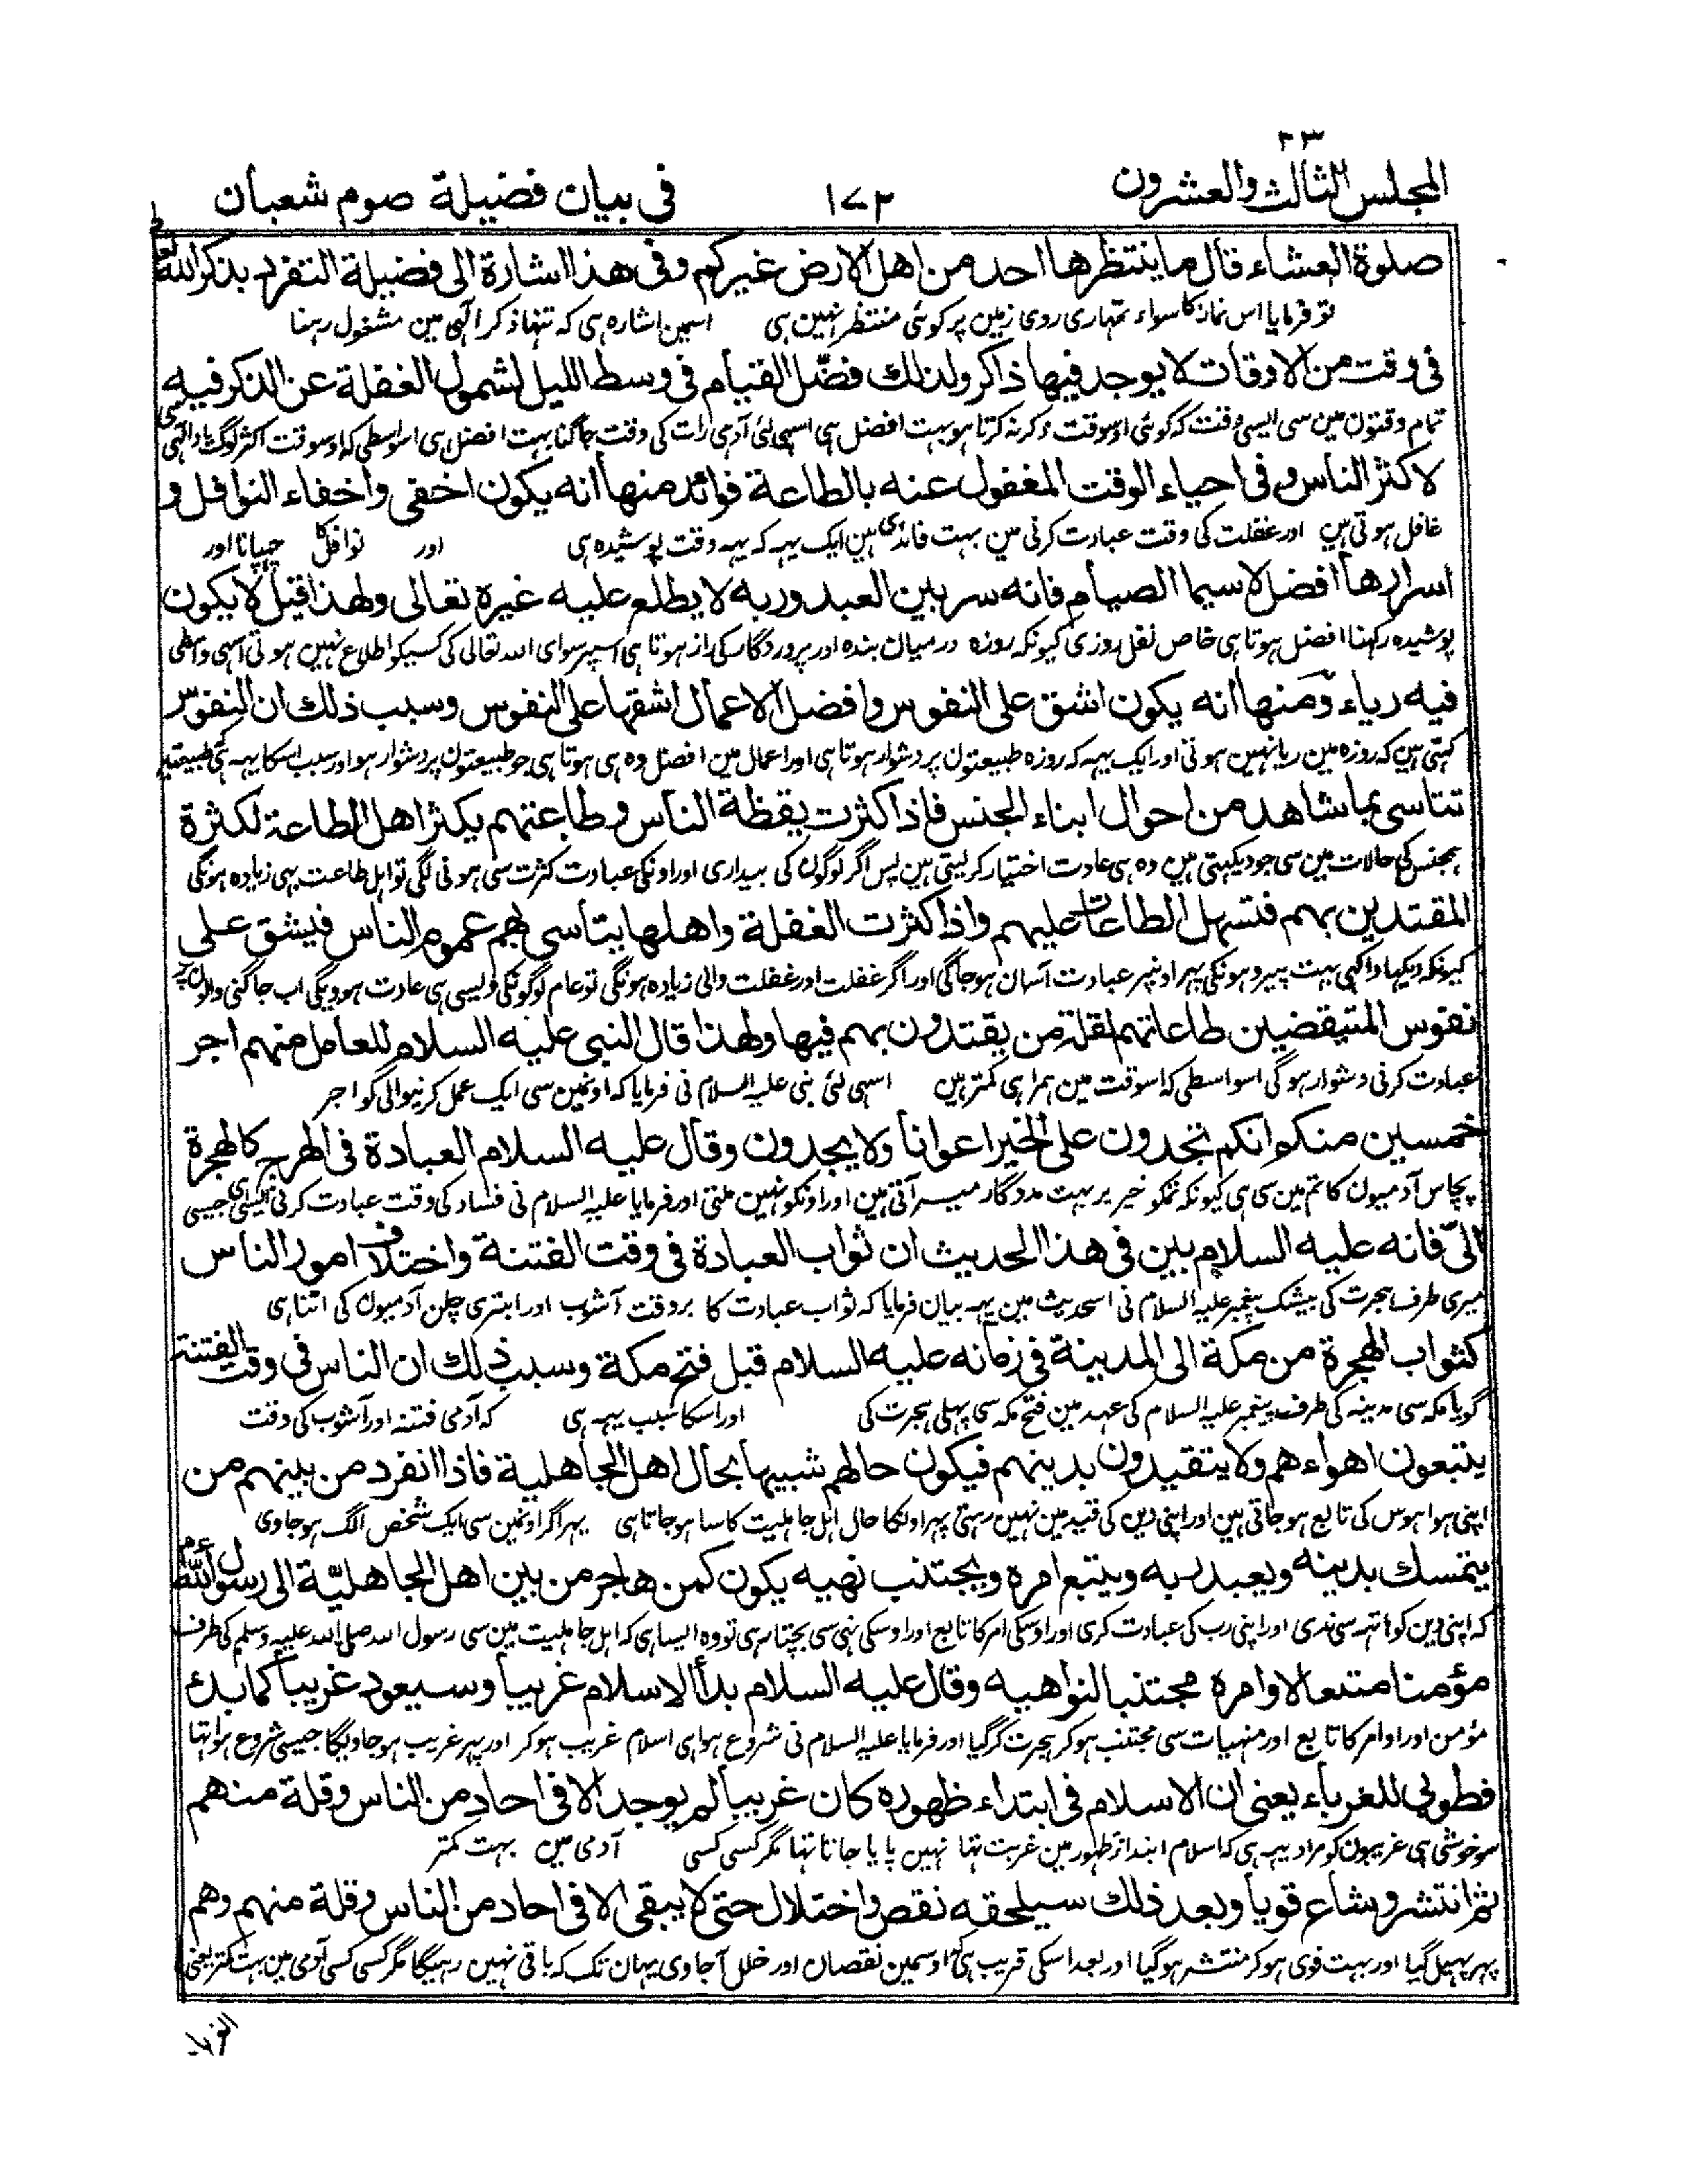 ٢٣
المجلس الثالث والعشرون ١٧٢ فى بيان فضيلة صوم شعبان
صلوة العشاء فقال ما ينتظرها احد من اهل الارض غيركم وفى هذا اشارة الى فضيلة التفرد بذكر الله تعالى
تو فرمايا اس نماز كا سواء تمہاری روی زمین پر کوئی منتظر نہین ہی اسمین اشارہ ہی کہ تنہا ذکر الٰہی مین مشغول رہنا
فى وقت من الاوقات لا يوجد فيها ذاكر ولذلك فضّل القيام فى وسط الليل لشمول الغفلة عن الذكر فيه
تمام وقتون مین سی ایسی وقت کہ کوئی اوسوقت ذکر نہ کرتا ہو بہت افضل ہی اسی لئی آدمی رات کی وقت جاگنا بہت افضل ہی اسواسطی کہ اوسوقت اکثر لوگ یاد الٰہی سی
لاكثر الناس و فى احياء الوقت المغفول عنه بالطاعة فوائد منها انه يكون اخفى واخفاء النوافل و
غافل ہوتی ہین اور غفلت کی وقت عبادت کرنی مین بہت فائدی ہین ایک یہہ کہ یہہ وقت پوشیدہ ہی اور نوافل کا چہپانا اور
اسرارها افضل لاسيما الصيام فانه سر بين العبد وربه لا يطلع عليه غيره تعالى ولهذا قيل لا يكون
پوشیدہ رکہنا افضل ہوتا ہی خاص نفل روزی کیونکہ روزہ درمیان بندہ اور پروردگار کی راز ہوتا ہی اسپر سوای اللہ تعالی کی کسیکو اطلاع نہین ہوتی اسی واسطی
فيه رياء ومنها انه يكون اشق على النفوس وافضل الاعمال اشقها على النفوس وسبب ذلك ان النفوس
کہتی ہین کہ روزہ مین ریا نہین ہوتی اور ایک یہہ کہ روزہ طبیعتون پر دشوار ہوتا ہی اور اعمال مین افضل وہ ہی ہوتا ہی جو طبیعتون پر دشوار ہو اور سبب اسکا یہہ کہ طبیعتین
تتاسى بما تشاهد من احوال ابناء الجنس فاذا كثرت يقظة الناس وطاعتهم يكثر اهل الطاعة لكثرة
ہمجنس کی حالات مین سی جو دیکہتی ہین وہ ہی عادت اختیار کر لیتی ہین پس اگر لوگون کی بیداری اور اونکی عبادت کثرت سی ہونی لگی تو اہل طاعت بہی زیادہ ہونگی
المقتدين بهم فتسهل الطاعات عليهم واذا كثرت الغفلة واهلها يتأسى بهم عموم الناس فيشق على
کیونکہ دیکہا داکہی بہت پیرو ہونگی پہر اونپر عبادت آسان ہوجاگی اور اگر غفلت اور غفلت والی زیادہ ہونگی تو عام لوگونکی ویسی ہی عادت ہو ویگی اب جاگنی والون پر
نفوس المتيقضين طاعاتهم لقلة من يقتدون بهم فيها ولهذا قال النبى عليه السلام للعامل منهم اجر
عبادت کرنی دشوار ہوگی اسواسطی کہ اسوقت مین ہمراہی کمتر ہین اسی لئی نبی علیہ السلام نی فرمایا کہ اونمین سی ایک عمل کرنیوالی کو اجر
خمسين منكم انكم تجدون على الخير اعوانا ولا يجدون وقال عليه السلام العبادة فى الهرج كالهجرة
پچاس آدمیون کا تم مین سی ہی کیونکہ تمکو خیر پر بہت مددگار میسر آتی ہین اور اونکو نہین ملتی اور فرمایا علیہ السلام نی فساد کی وقت عبادت کرنی ایسی ہی جیسی
الىّ فانه عليه السلام بين فى هذا الحديث ان ثواب العبادة فى وقت الفتنة واختلاف امور الناس
میری طرف ہجرت کی بیشک پیغمبر علیہ السلام نی اسحدیث مین یہہ بیان فرمایا کہ ثواب عبادت کا بروقت آشوب اور ابتری چلن آدمیون کی اتنا ہی
كثواب الهجرة من مكة الى المدينة فى زمانه عليه السلام قبل فتح مكة وسبب ذلك ان الناس فى وقت الفتنة
گویا مکہ سی مدینہ کی طرف پیغمبر علیہ السلام کی عہد مین فتح مکہ سی پہلی ہجرت کی اور اسکا سبب یہہ ہی کہ آدمی فتنہ اور آشوب کی وقت
يتبعون اهواءهم ولا يتقيدون بدينهم فيكون حالهم شبيها بحال اهل الجاهلية فاذا انفرد من بينهم من
اپنی ہوا ہوس کی تابع ہوجاتی ہین اور اپنی دین کی قید مین نہین رہتی پہر اونکا حال اہل جاہلیت کا سا ہوجاتا ہی پہر اگر اونمین سی ایک شخص الگ ہوجاوی
يتمسك بدينه ويعبد ربه ويتبع امره ويجتنب نهيه يكون كمن هاجر من بين اهل الجاهليّة الى رسول الله عم
کہ اپنی دین کو ہاتہہ سی ندی اور اپنی رب کی عبادت کری اور اوسکی امر کا تابع اور اوسکی نہی سی بچتا رہی تو وہ ایسا ہی کہ اہل جاہلیت مین سی رسول اللہ صلی اللہ علیہ وسلم کی طرف
مؤمنا متبعا لاوامره مجتنبا لنواهيه وقال عليه السلام بدأ الاسلام غريبا وسيعود غريبا كما بدأ
مؤمن اور اوامر کا تابع اور منہیات سی مجتنب ہوکر ہجرت کر گیا اور فرمایا علیہ السلام نی شروع ہوا ہی اسلام غریب ہوکر اور پہر غریب ہوجاویگا جیسی شروع ہوا تہا
فطوبى للغرباء يعنى ان الاسلام فى ابتداء ظهوره كان غريبا لم يوجد الا فى احاد من الناس وقلة منهم
سو خوشی ہی غریبون کو مراد یہہ ہی کہ اسلام ابتداء ظہور مین غریب تہا نہین پایا جاتا تہا مگر کسی کسی آدمی مین بہت کمتر
ثم انتشر وشاع قويا وبعد ذلك سيلحقه نقص واختلال حتى لا يبقى الا فى احاد من الناس وقلة منهم وهم
پہر پہیل گیا اور بہت قوی ہوکر منتشر ہوگیا اور بعد اسکی قریب ہی کہ اوسمین نقصان اور خلل آجاوی یہان تک کہ باقی نہین رہیگا مگر کسی کسی آدمی مین بہت کمتر یعنی